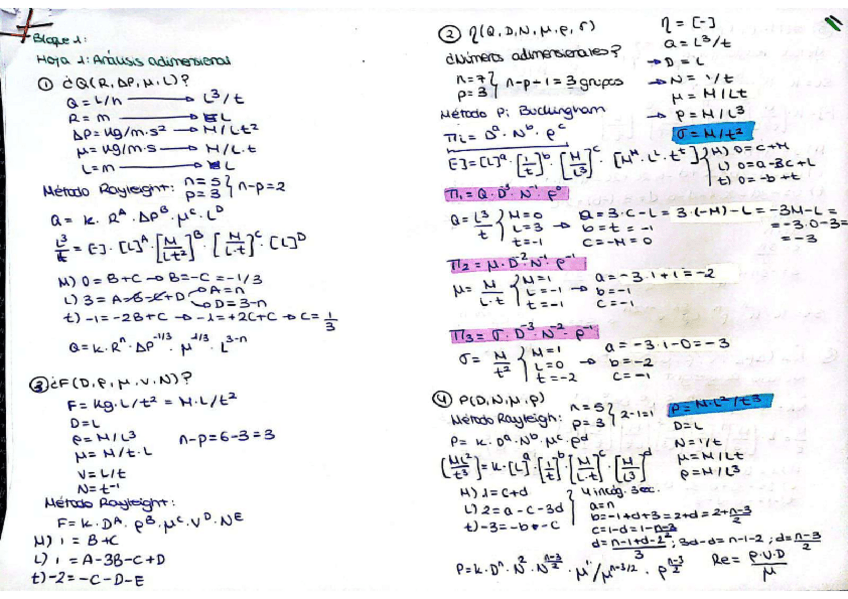 Bloque 1:
Hoja 1: Análisis adimensional
① ¿Q(R, ΔP, μ, L)?
Q = L/h → L³/t
R = m → L
ΔP = kg/m·s² → M/Lt²
μ = kg/m·s → M/L·t
L = m → L
Método Rayleight: n=5 p=3 } n-p=2
Q = k. R^A · ΔP^B · μ^C · L^D
L³/t = [-] · [L]^A · [M/Lt²]^B · [M/L·t]^C · [L]^D
M) 0 = B+C → B=-C = -1/3
L) 3 = A-B-C+D → A=n
→ D=3-n
t) -1 = -2B+C → -1=+2C+C → C = 1/3
Q = k. R^n · ΔP^-1/3 · μ^-1/3 · L^3-n
③ ¿F(D, ρ, μ, v, N)?
F = Kg·L/t² = M·L/t²
D=L
ρ = M/L³ n-p=6-3=3
μ = M/t·L
V = L/t
N = t⁻¹
Método Rayleight:
F = k. D^A · ρ^B · μ^C · V^D · N^E
M) 1 = B+C
L) 1 = A-3B-C+D
t) -2 = -C-D-E
② η(Q, D, N, μ, ρ, σ)
¿Números adimensionales?
n=7 p=3 } n-p-1=3 grupos
Método Pi Buckingham
πi = D^a · N^b · ρ^c
η = [-]
Q = L³/t
→ D = L
→ N = 1/t
μ = M/Lt
→ ρ = M/L³
σ = M/t²
[-] = [L]^a · [1/t]^b · [M/L³]^c · [M^M · L^L · t^t] { M) 0=c+M
L) 0=a-3c+L
t) 0=-b+t
π₁ = Q · D⁻³ · N⁻¹ · ρ⁰
Q = L³/t { M=0 L=3 t=-1 → a = 3·c-L = 3·(-M)-L = -3M-L =
= -3·0-3 =
= -3
b = t = -1
c = -M = 0
π₂ = μ · D⁻² · N⁻¹ · ρ⁻¹
μ = M/L·t { M=1 L=-1 t=-1 → a = -3·1+1 = -2
b=-1
c=-1
π₃ = σ · D⁻³ · N⁻² · ρ⁻¹
σ = M/t² { M=1 L=0 t=-2 → a = -3·1-0 = -3
b=-2
c=-1
④ P(D, N, μ, ρ)
Método Rayleigh: n=5 p=3 } 2-1=1
P = k. D^a · N^b · μ^c · ρ^d
P = M·L²/t³
D=L
N=1/t
μ=M/Lt
ρ=M/L³
[ML²/t³] = k · [L]^a · [1/t]^b · [M/L·t]^c · [M/L³]^d
M) 1=c+d
L) 2=a-c-3d
t) -3=-b-c
4 incóg. 3 ec.
a=n
b=-1+d+3=2+d=2+n-3/2
c=1-d=1-n-3/2
d=n-1+d-2/3 ; 3d-d=n-1-2 ; d=n-3/2
P = k · D^n · N² · N^n-3/2 · μ¹/μ^n-3/2 · ρ^n-3/2 Re = ρ·v·D/μ